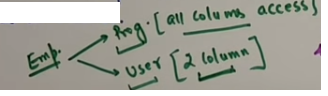 Prog. [all colums access]
Emp.
User [2 Column]